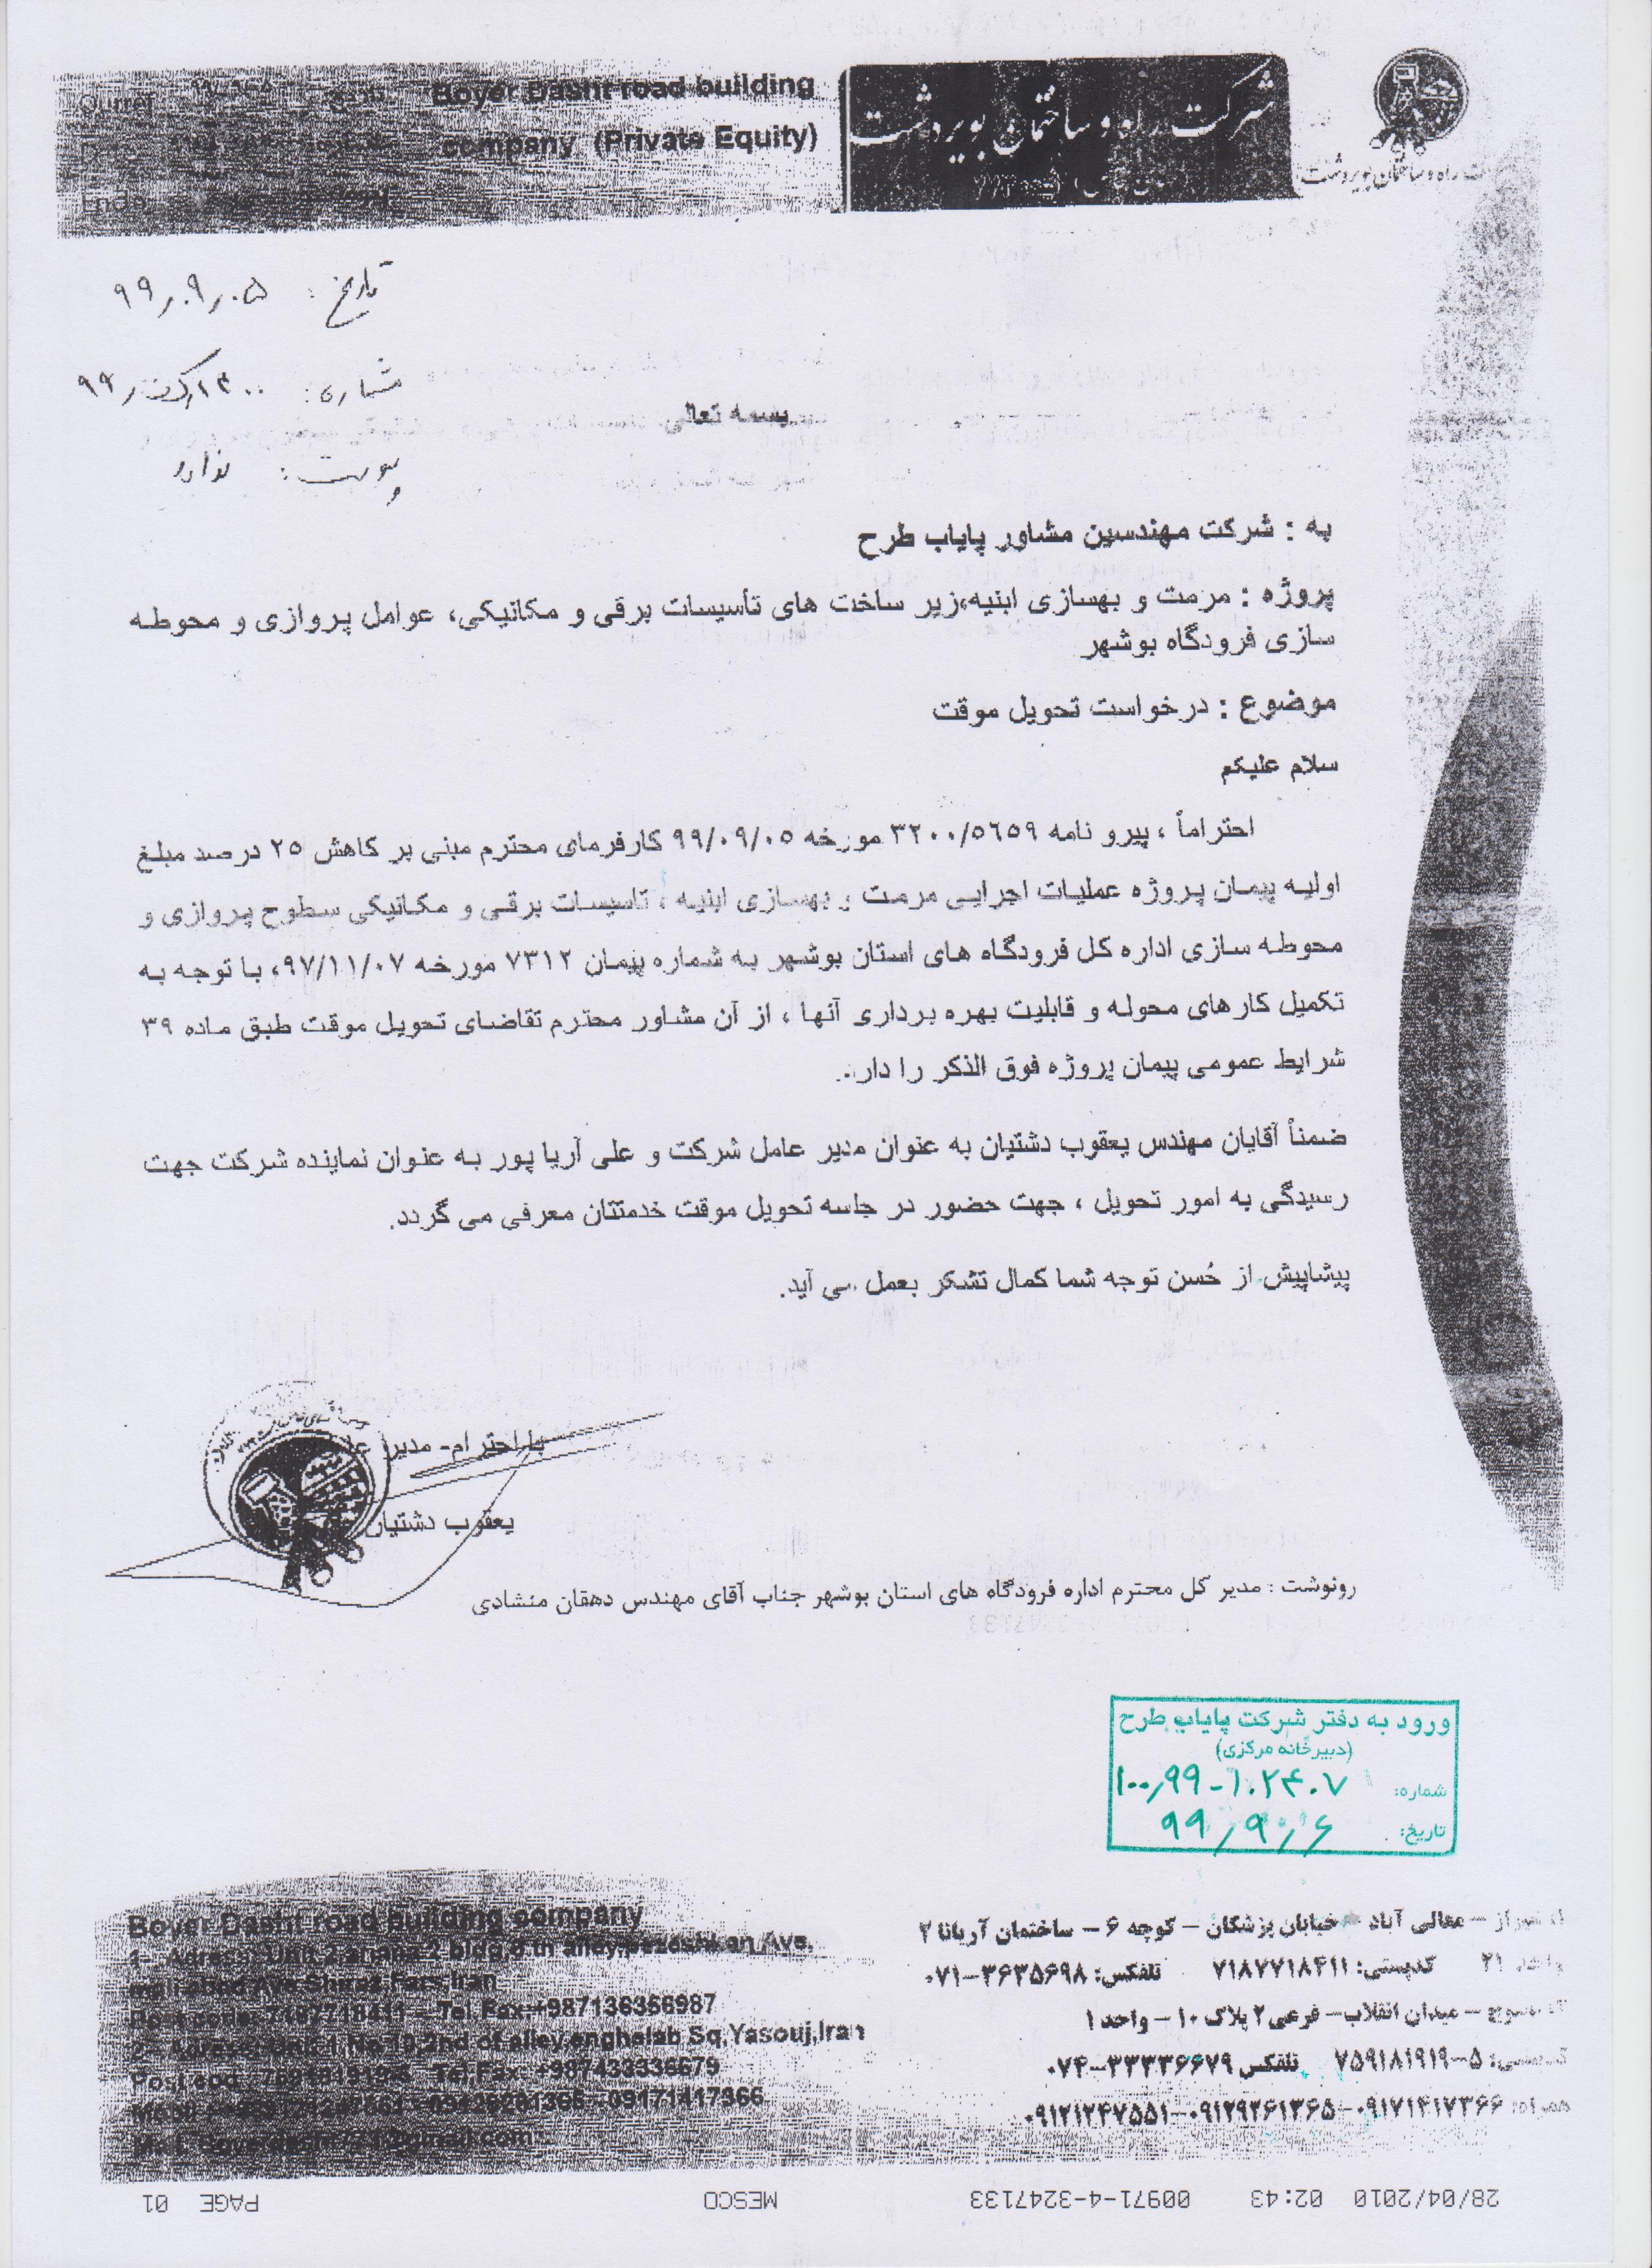 Boyer Dasht road building
company (Private Equity)
شرکت راه و ساختمان بویردشت
راه و ساختمان بویردشت
تاریخ: ۹۹٫۰۹٫۰۵
شماره:
پیوست: ندارد
بسمه تعالی
به : شرکت مهندسین مشاور پایاب طرح
پروژه : مرمت و بهسازی ابنیه،زیر ساخت های تأسیسات برقی و مکانیکی، عوامل پروازی و محوطه
سازی فرودگاه بوشهر
موضوع : درخواست تحویل موقت
سلام علیکم
احتراماً ، پیرو نامه ۳۲۰۰/۵۶۵۹ مورخه ۹۹/۰۹/۰۵ کارفرمای محترم مبنی بر کاهش ۲۵ درصد مبلغ
اولیه پیمان پروژه عملیات اجرایی مرمت و بهسازی ابنیه ، تاسیسات برقی و مکانیکی سطوح پروازی و
محوطه سازی اداره کل فرودگاه های استان بوشهر به شماره پیمان ۷۳۱۲ مورخه ۹۷/۱۱/۰۷، با توجه به
تکمیل کارهای محوله و قابلیت بهره برداری آنها ، از آن مشاور محترم تقاضای تحویل موقت طبق ماده ۳۹
شرایط عمومی پیمان پروژه فوق الذکر را دارد.
ضمناً آقایان مهندس یعقوب دشتیان به عنوان مدیر عامل شرکت و علی آریا پور به عنوان نماینده شرکت جهت
رسیدگی به امور تحویل ، جهت حضور در جلسه تحویل موقت خدمتتان معرفی می گردد.
پیشاپیش از حُسن توجه شما کمال تشکر بعمل می آید.
با احترام- مدیر
یعقوب دشتیان
رونوشت : مدیر کل محترم اداره فرودگاه های استان بوشهر جناب آقای مهندس دهقان منشادی
ورود به دفتر شرکت پایاب طرح
(دبیرخانه مرکزی)
شماره: ۱۰۰٫۹۹-۱۰۲۴۰۷
تاریخ: ۹۹٫۹٫۶
شیراز – معالی آباد – خیابان پزشکان – کوچه ۶ – ساختمان آریانا ۲
واحد ۲۱ کدپستی: ۷۱۸۷۷۱۸۴۱۱ تلفکس: ۳۶۳۵۶۹۸–۰۷۱
یاسوج – میدان انقلاب– فرعی ۲ پلاک ۱۰ – واحد ۱
کدپستی: ۵–۷۵۹۱۸۱۹۱۹ تلفکس ۳۳۳۳۶۶۷۹–۰۷۴
همراه: ۰۹۱۷۱۴۱۷۳۶۶–۰۹۱۲۹۲۶۱۳۶۵–۰۹۱۲۱۲۴۷۵۵۱
Boyer Dasht road building company
Ave,
Shiraz Fars Iran
7187718411 Tel Fax:+987136356987
alley,enghelab Sq,Yasouj,Iran
Tel,Fax: +987433336679
09171417366
28/04/2010 02:43 00971-4-3247133 MESCO PAGE 01